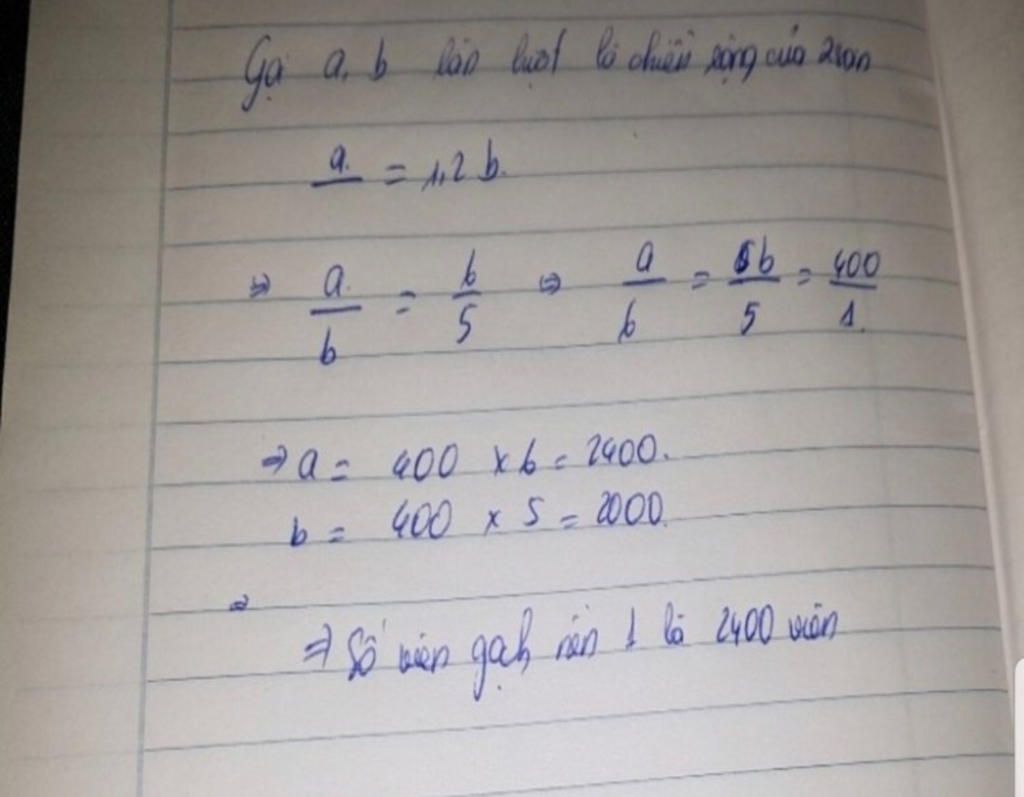 Gọi a, b lần lượt là chiều rộng của 2
a = 1,2 b.
⇒ a/b = b/5 ⇒ a/b = 6b/5 = 400/1
⇒ a = 400 x 6 = 2400.
b = 400 x 5 = 2000.
⇒
⇒ Số viên gạch nền 1 là 2400 viên